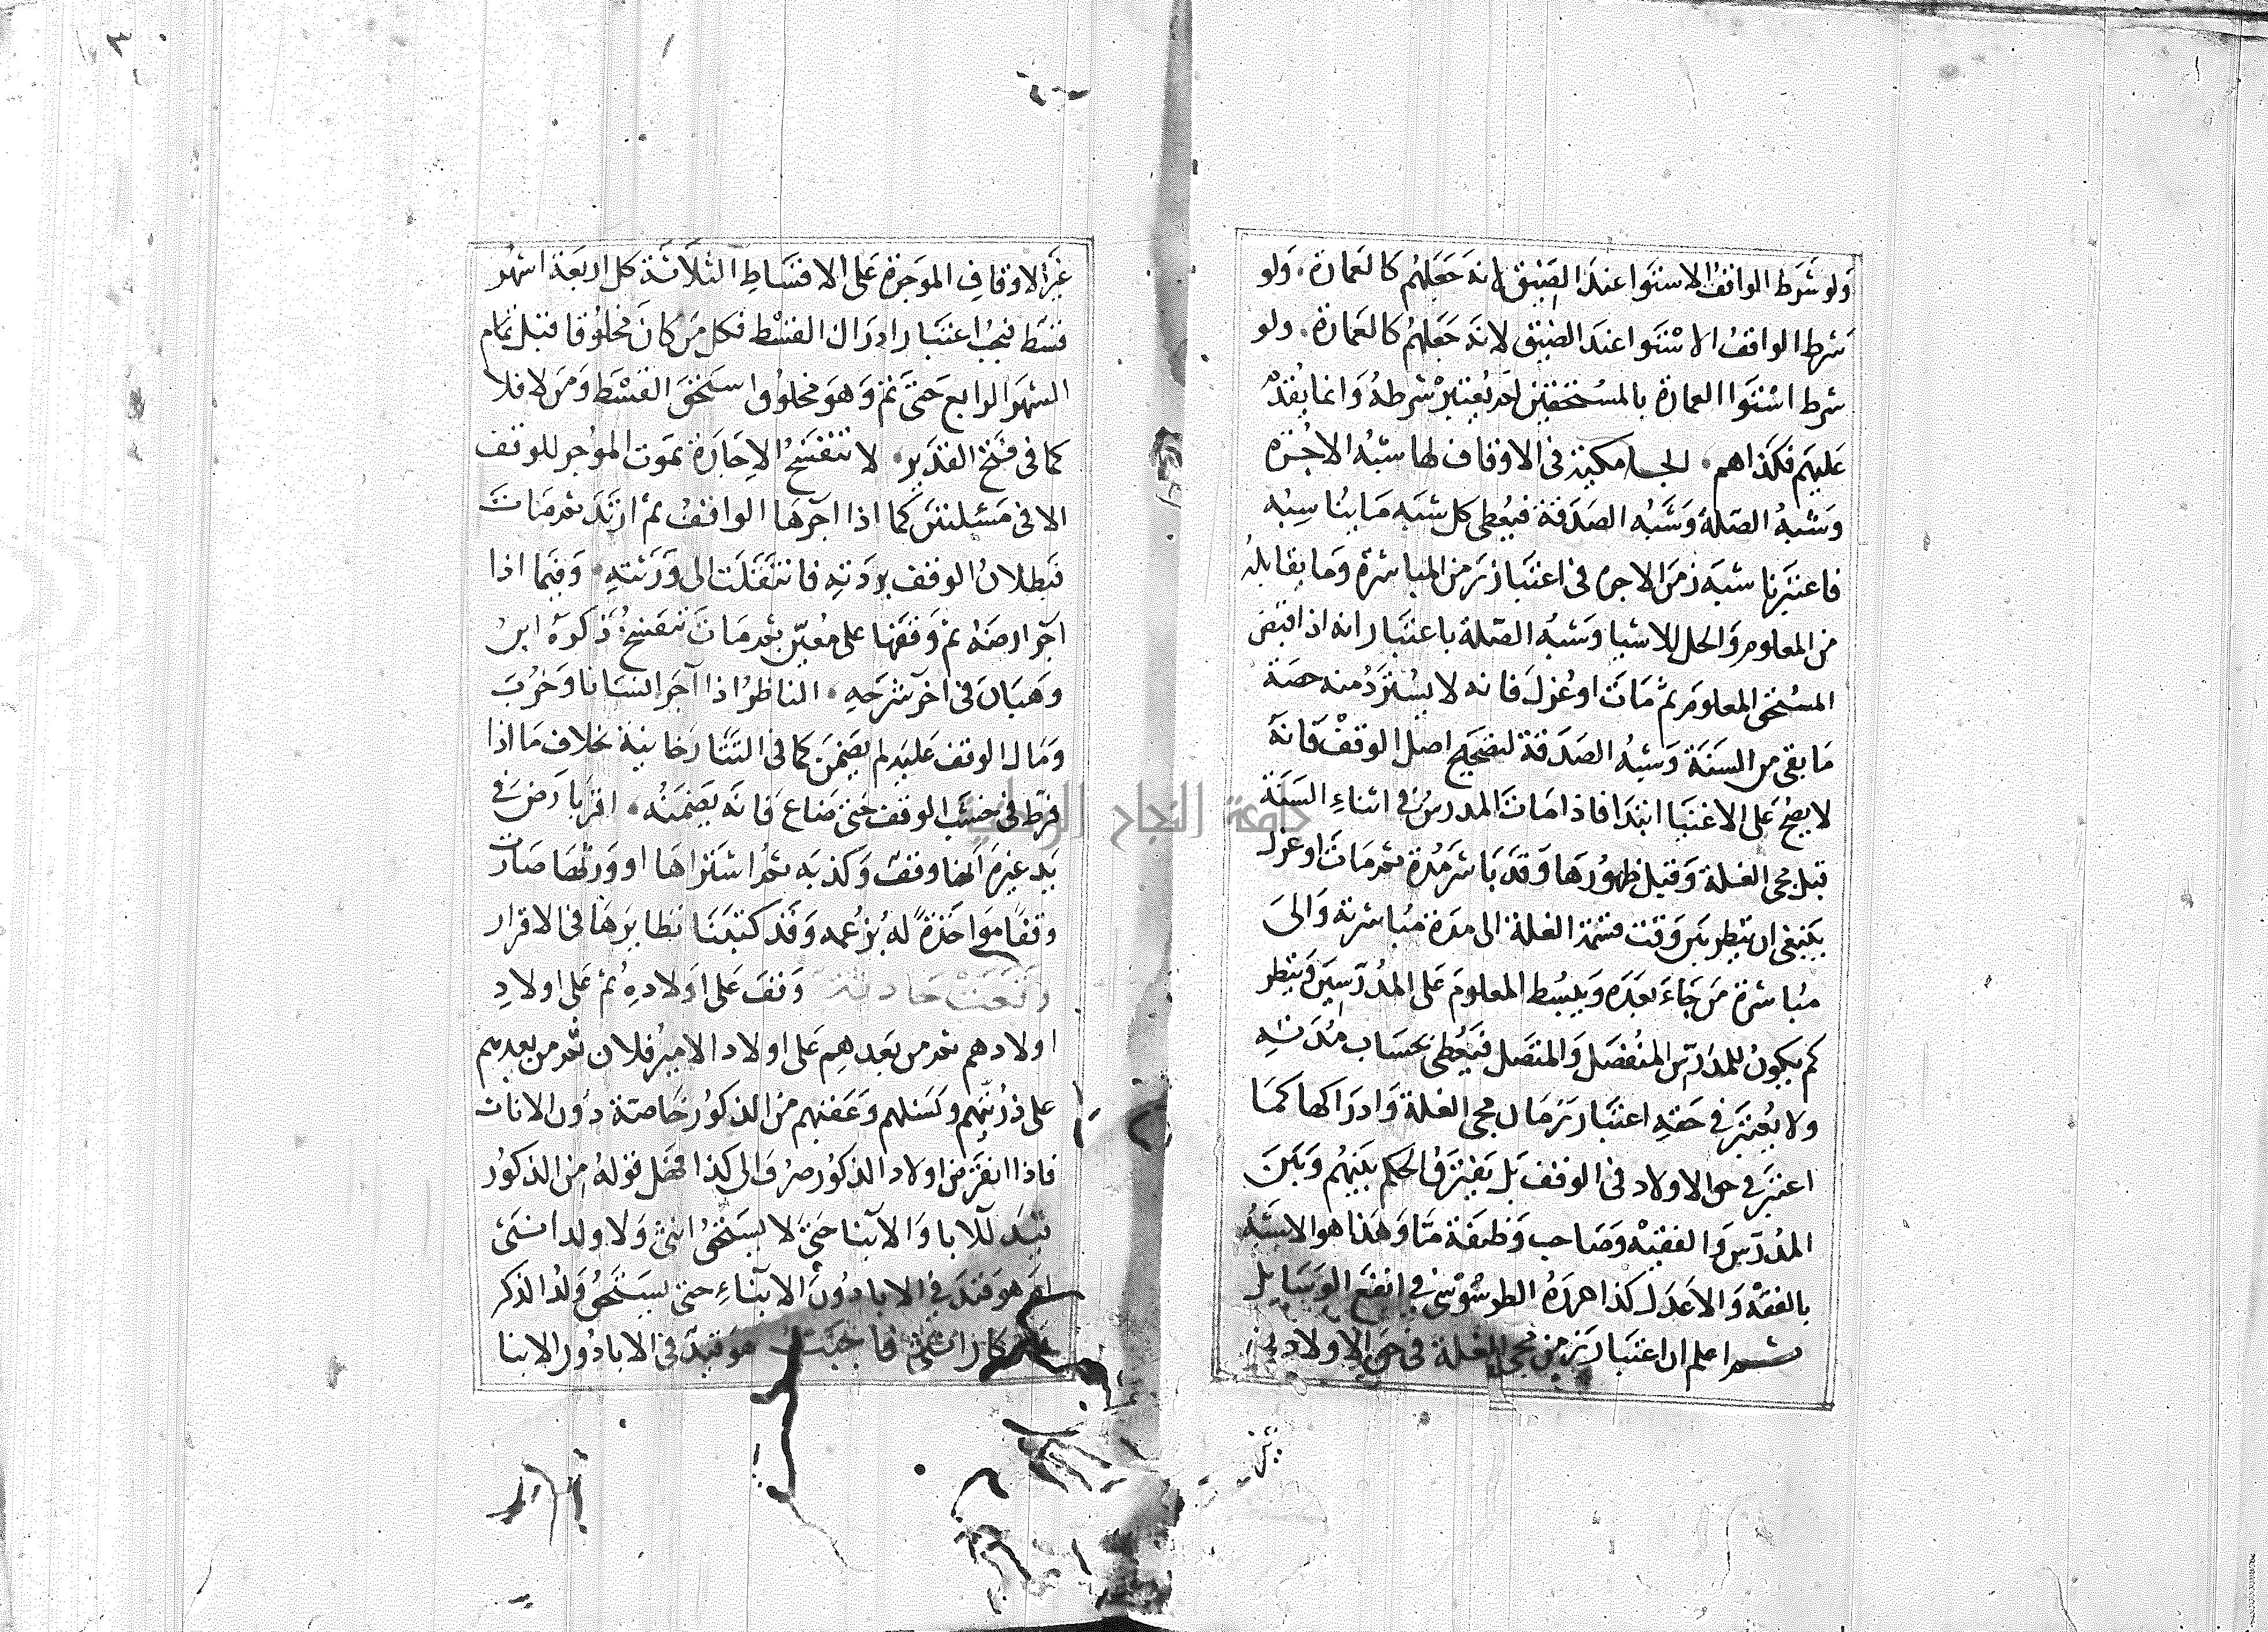 ولو شرط الواقف الاستوا عند الضيق لانه جعلهم كالعمارة. ولو
شرط الواقف الاستوا عند الضيق لانه جعلهم كالعمارة. ولو
شرط استوا العمارة بالمستحقين لم يعتبر شرطه وانما يقدم
عليهم فكذا هم. الجامكية في الاوقاف لها شبه الاجرة
وشبه الصلة وشبه الصدقة فيعطى كل شبه ما يناسبه
فاعتبرنا شبه زمن الاجره في اعتبار زمن المباشرة وما يقابله
من المعلوم والحل للاغنيا وشبه الصلة باعتبار انه اذا قبض
المستحق المعلوم ثم مات او عزل فانه لا يسترد منه حصة
ما بقي من السنة وشبه الصدقة لتصحيح اصل الوقف فانه
لا يصح على الاغنيا ابتدا فاذا مات المدرس في اثناء السنة
قبل مجي الغلة وقبل ظهورها وقد باشر مدة ثم مات او عزل
ينبغي ان ينظر بين وقت قسمة الغلة الى مدة مباشرته والى
مباشرة من جاء بعده ويبسط المعلوم على المدرسين وينظر
كم يكون للمدرس المنفصل والمتصل فيعطى بحساب مدته
ولا يعتبر في حقه اعتبار زمان مجي الغلة وادراكها كما
اعتبر في حق الاولاد في الوقف بل يفترق الحكم بينهم وبين
المدرس والفقيه وصاحب وظيفة ما وهذا هو الاشبه
بالفقه والاعدل كذا حرره الطرسوسي في انفع الوسايل
ثم اعلم ان اعتبار زمن مجي الغلة في حق الاولاد في
غير الاوقاف الموجرة على الاقساط الثلاثة كل اربعة اشهر
قسط فيجب اعتبار ادراك القسط فكل من كان مخلوقا قبل تمام
الشهر الرابع حتى تم وهو مخلوق استحق القسط ومن لا فلا
كما في فتح القدير. لا تنفسخ الاجارة بموت الموجر للوقف
الا في مسئلتين كما اذا آجرها الواقف ثم ارتد ثم مات
فبطلان الوقف بردته فانتقلت الى ورثته. وفيما اذا
آجر ارضه ثم وقفها على معين ثم مات تنفسخ ذكره ابن
وهبان في آخر شرحه. الناظر اذا آجر انسانا وخرب
ومال الوقف عليه لم يضمن كما في التتارخانية بخلاف ما اذا
فرط في خشب الوقف حتى ضاع فانه يضمنه. اقر بارض في
يد غيره انها وقف وكذبه ثم اشتراها او ورثها صارت
وقفا مواخذة له بزعمه وقد كتبنا نظايرها في الاقرار
وقعت حادثة وقف على اولاده ثم على اولاد
اولادهم ثم من بعدهم على اولاد الامير فلان ثم من بعدهم
على ذريتهم ونسلهم وعقبهم من الذكور خاصة دون الاناث
فاذا انقرض اولاد الذكور صرف الى كذا فهل قوله من الذكور
قيد للابا والابنا حتى لا يستحق انثى ولا ولد انثى
ام هو قيد في الابا دون الابناء حتى يستحق ولد الذكر
ولو كان انثى فاجبت هو قيد في الابا دون الابنا
جامعة النجاح الوطنية